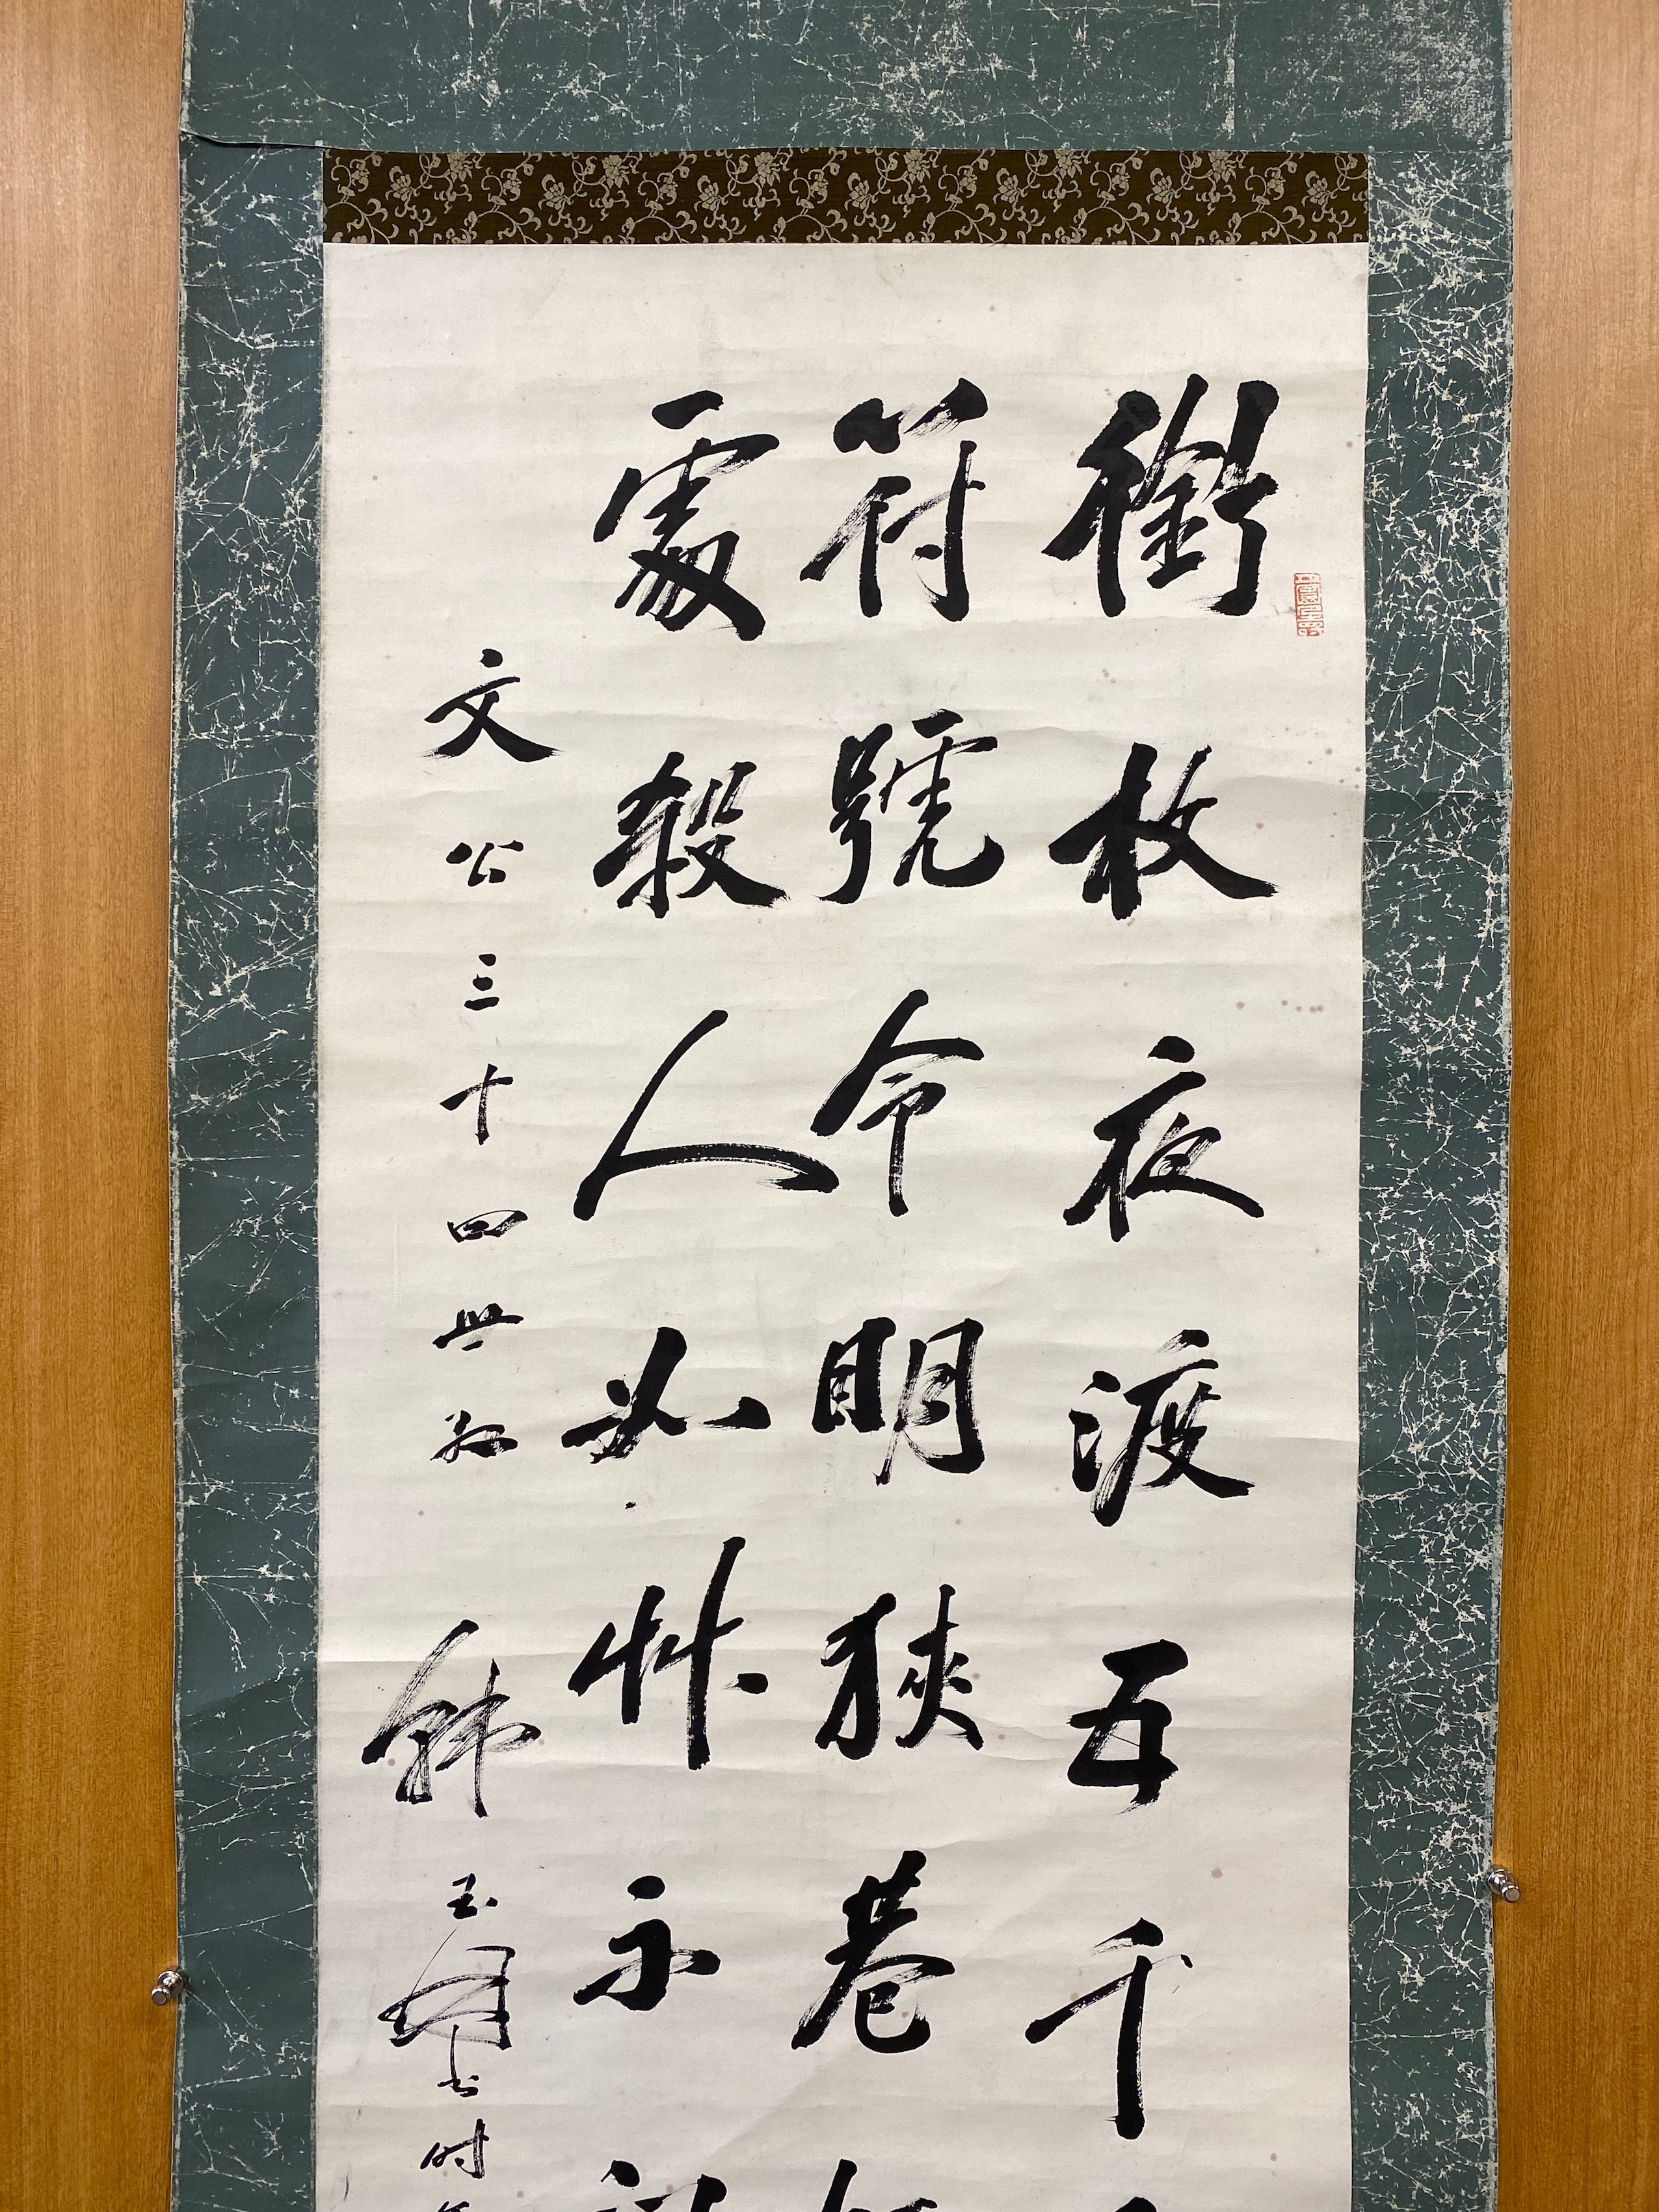 銜枚夜渡五千
符號令明狹巷
處殺人如艸不
文公三十四世孫 韓玉
書時